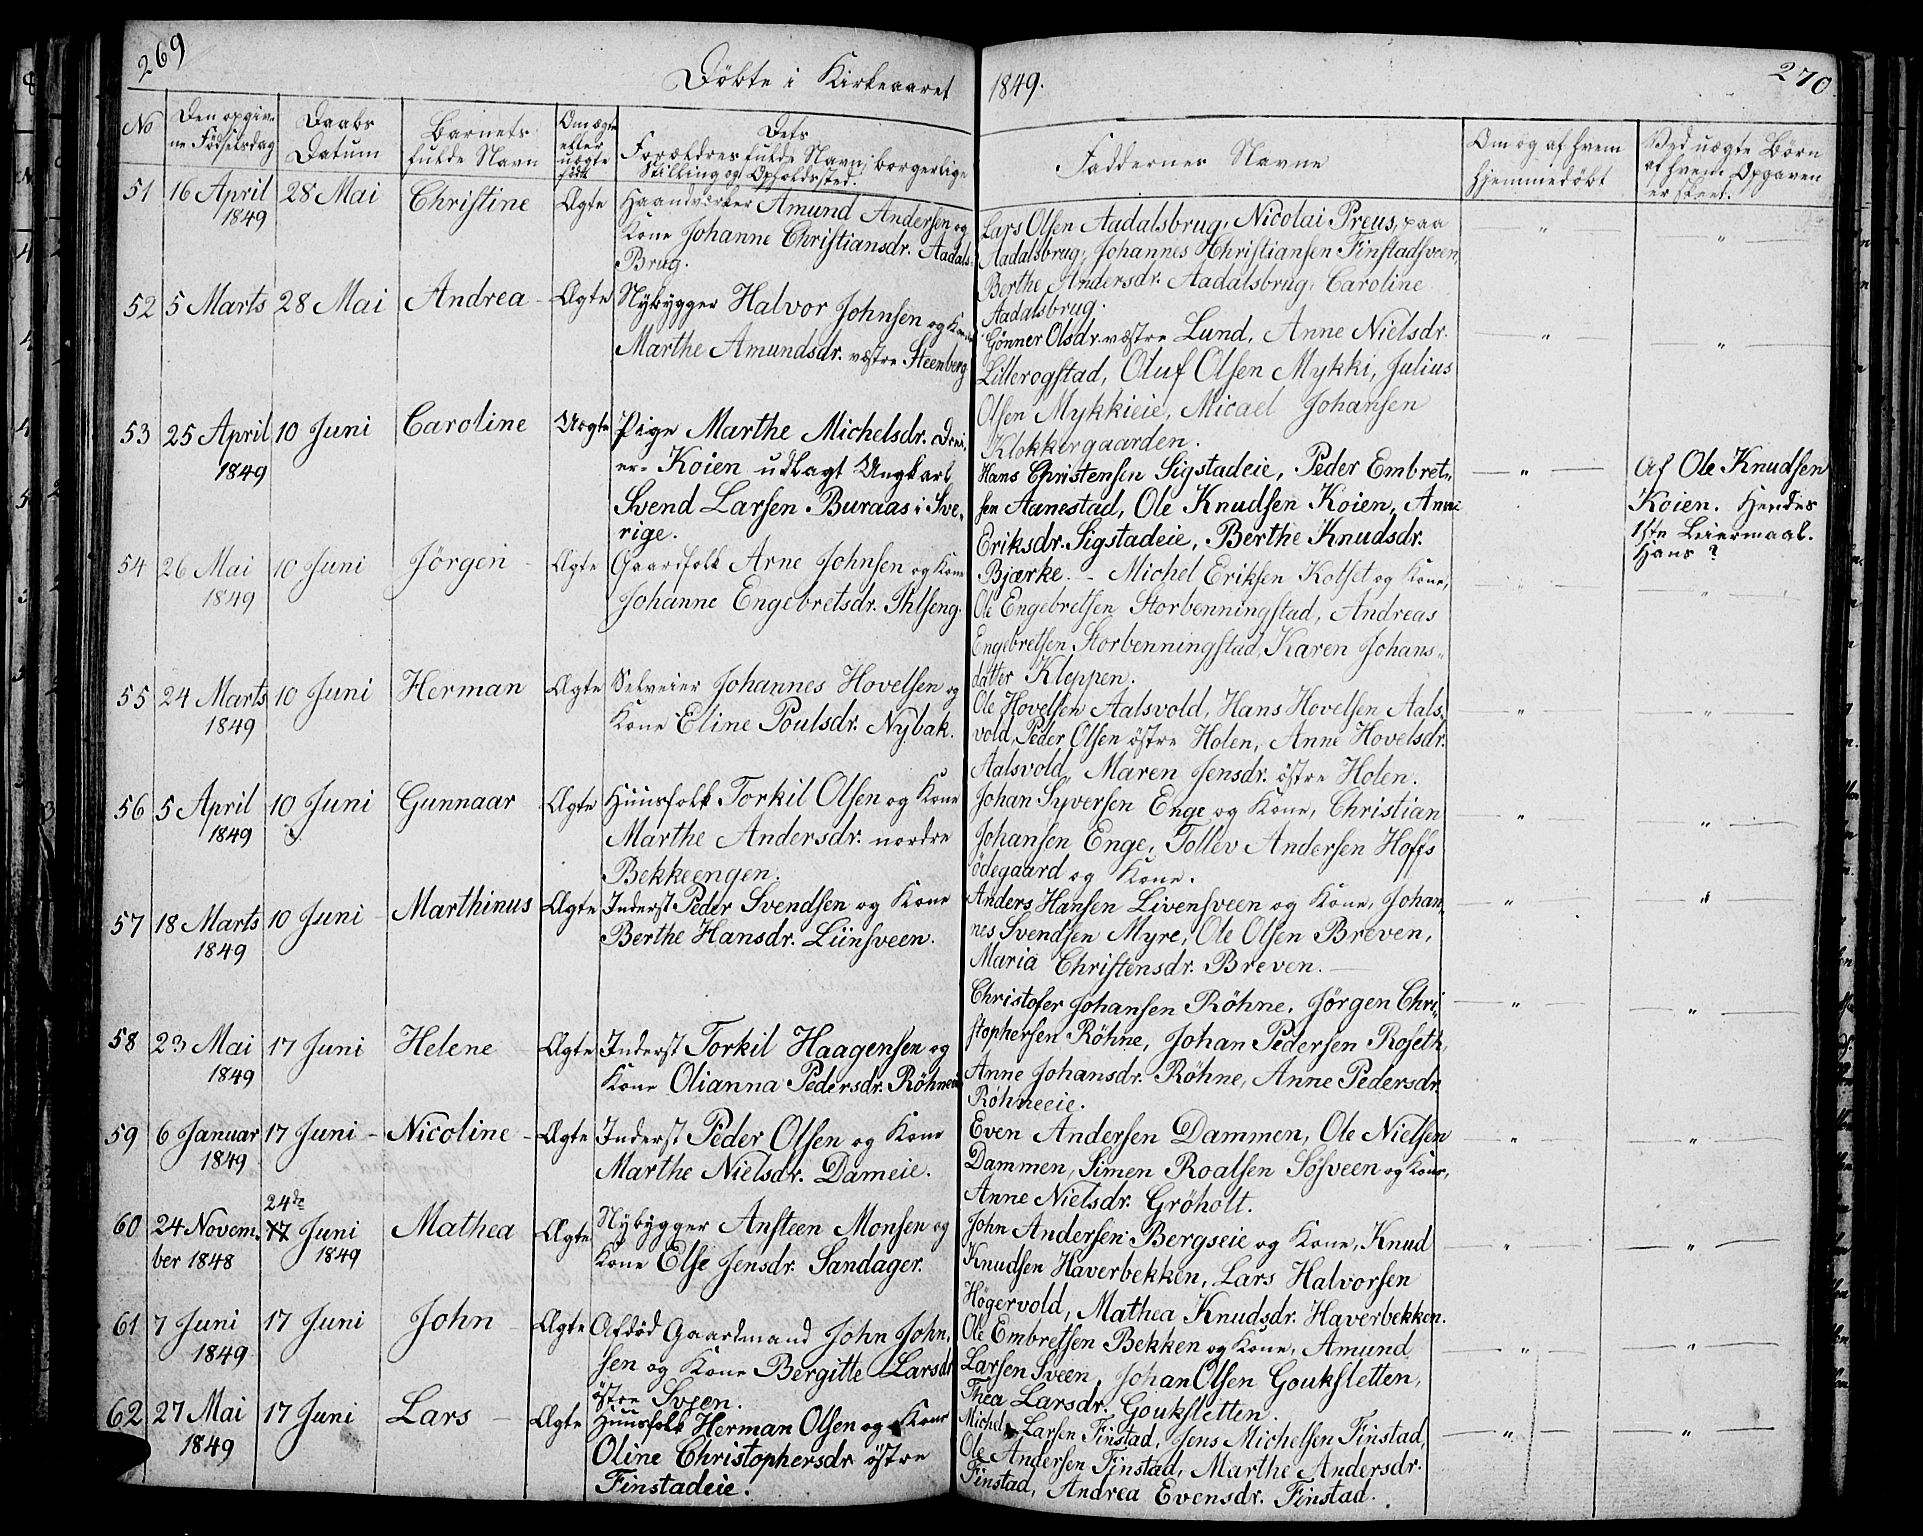 269
Döbte i Kirkeaaret
No
Den opgiv-
ne Födselsdag
Daabs
Datum
Barnets
fulde Navn
Om ægte
eller
uægte
født
Dets
Forældres fulde Navn, borgerlige
Stilling og Opholdssted.
51 16 April 28 Mai Christine Ægte Haandværker Amund Andersen og
1849 Kone Johanne Christiansdr. Aadals-
Brug.
52 5 Marts 28 Mai Andrea - Ægte Nÿbygger Halvor Johnsen og Kone
Marthe Amundsdr. væstre Steenberg
53 25 April 10 Juni Caroline Uægte Pige Marthe Michelsdr.
1849 Koien udlagt Ungkarl
Svend Larsen Buraas i Sve-
rige.
54 26 Mai 10 Juni Jörgen - Ægte Gaardfolk Arne Johnsen og Kone
1849 Johanne Engebretsdr. Ihlseng.
55 24 Marts 10 Juni Herman Ægte Selveier Johannes Hovelsen og
1849 Kone Eline Poulsdr. Nybak.
56 5 April 10 Juni Gunnaar Ægte Huusfolk Torkil Olsen og Kone
1849 Marthe Andersdr. nordre
Bekkeengen.
57 18 Marts 10 Juni - Marthinus Ægte Inderst Peder Svendsen og Kone
1849 Berthe Hansdr. Liinsveen.
58 23 Mai 17 Juni Helene Ægte Inderst Torkil Haagensen og
1849 Kone Olianna Pedersdr. Röhneeie
59 6 Januar 17 Juni - Nicoline - Ægte Inderst Peder Olsen og Kone
1849 Marthe Nielsdr. Dameie.
24de
60 24 Novem- 17 Juni Mathea Ægte Nÿbygger Ansteen Monsen og
ber 1848 1849 Kone Else Jensdr. Sandager.
61 7 Juni 17 Juni John - Ægte Afdöd Gaardmand John John-
1849 sen og Kone Bergitte Larsdr
östre Svjen.
62 27 Mai 17 Juni Lars - Ægte Huusfolk Herman Olsen og Kone
1849 Oline Christophersdr östre
Finstadeie.
270
1849.
Faddernes Navne
Om og af hvem
hjemmedöbt
Ved uægte Börn
af hvem Opgaven
er skeet.
Lars Olsen Aadalsbrug, Nicolai Preus, paa
Aadalsbrug, Johannes Christiansen Finstadsveen,
Berthe Andersdr. Aadalsbrug, Caroline
Aadalsbrug.
Gönner Olsdr. væstre Lund, Anne Nielsdr.
Lillerogstad, Oluf Olsen Mykki, Julius
Olsen Mykkieie, Micael Johansen
Klokkergaarden.
Hans Christensen Sigstadeie, Peder Embret-
sen Aanestad, Ole Knudsen Koien, Anne
Eriksdr. Sigstadeie, Berthe Knudsdr.
Bjærke. - Michel Eriksen Kolset og Kone,
Af Ole Knudsen
Koien. Hendes
1ste Leiermaal.
Hans?
Ole Engebretsen Storbenningstad, Andreas
Engebretsen Storbenningstad, Karen Johans-
datter Kloppen.
Ole Hovelsen Aalsvold, Hans Hovelsen Aals-
vold, Peder Olsen östre Holen, Anne Hovelsdr.
Aalsvold, Maren Jensdr. östre Holen.
Johan Syversen Enge og Kone, Christian
Johansen Enge, Tollev Andersen Hoffs
ödegaard og Kone.
Anders Hansen Livensveen og Kone, Johan-
nes Svendsen Myre, Ole Olsen Breven,
Maria Christensdr. Breven.
Christofer Johansen Röhne, Jörgen Chri-
stophersen Röhne, Johan Pedersen Roseth,
Anne Johansdr. Röhne, Anne Pedersdr.
Röhneeie.
Even Andersen Dammen, Ole Nielsen
Dammen, Simen Roalsen Sösveen og Kone,
Anne Nielsdr. Gröholt.
John Andersen Bergseie og Kone, Knud
Knudsen Haverbekken, Lars Halvorsen
Högervold, Mathea Knudsdr. Haverbekken.
Ole Embretsen Bekken og Kone, Amund
Larsen Sveen, Johan Olsen Goukstetten,
Thea Larsdr. Goukstetten.
Michel Larsen Finstad, Jens Michelsen Finstad,
Ole Andersen Finstad, Marthe Andersdr.
Finstad, Andrea Evensdr. Finstad.